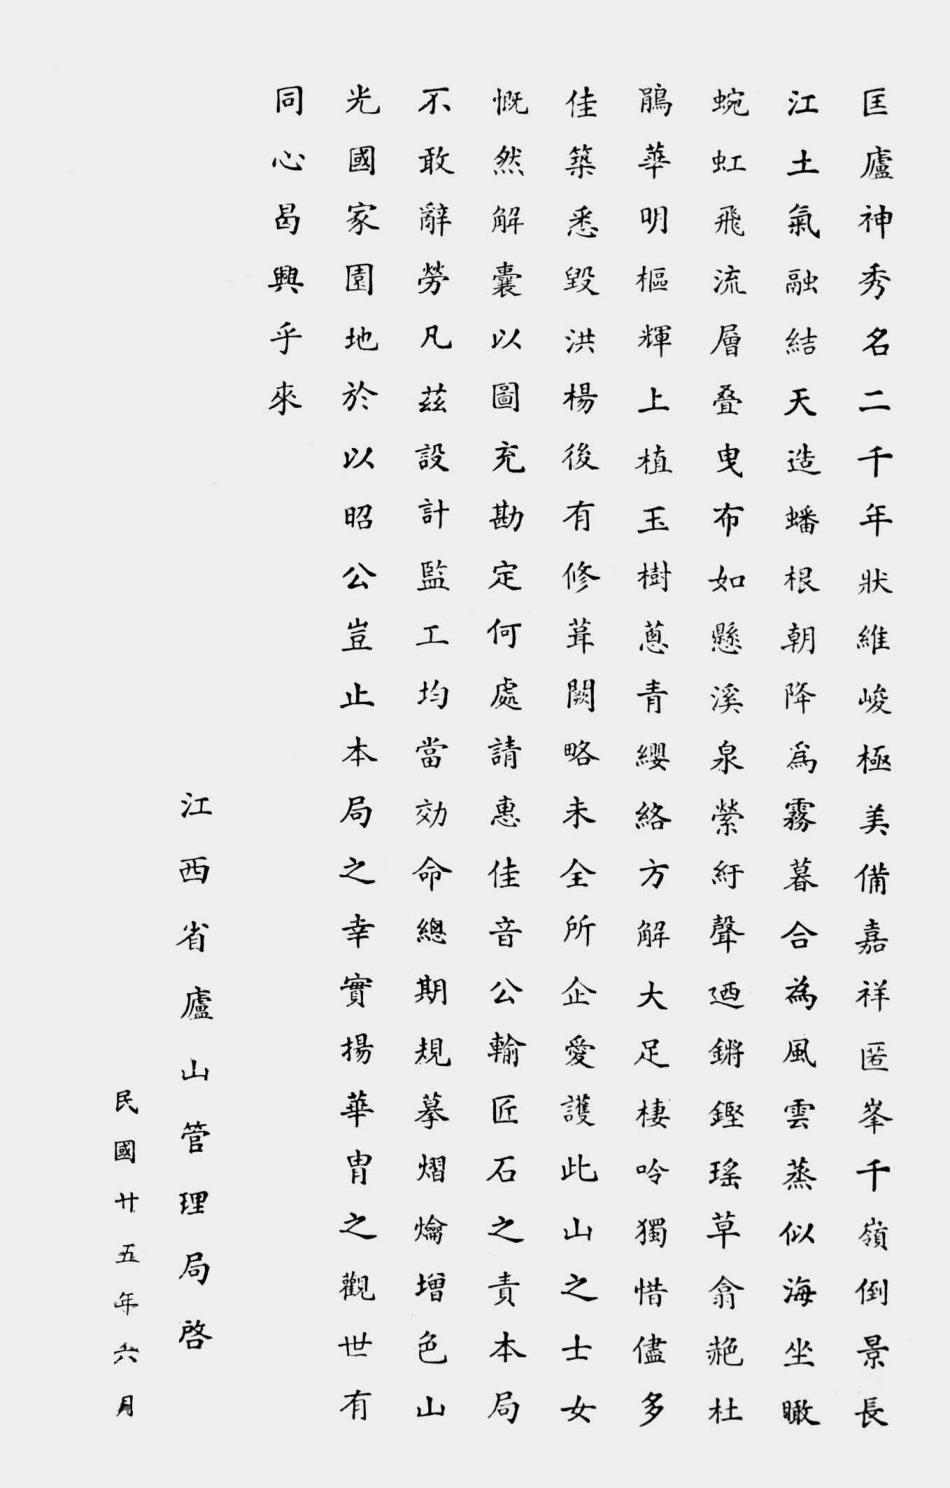 匡廬神秀名二千年狀維峻極美備嘉祥匿峯千嶺倒景長
江土氣融結天造蟠根朝降爲霧暮合為風雲蒸似海坐瞰
蜿虹飛流層疊曳布如懸溪泉縈紆聲迺鏘鏗瑤草翕赩杜
鵑華明樞輝上植玉樹蔥青纓絡方解大足棲吟獨惜儘多
佳築悉毀洪楊後有修葺闕略未全所企愛護此山之士女
慨然解囊以圖充勘定何處請惠佳音公輸匠石之責本局
不敢辭勞凡茲設計監工均當効命總期規摹熠爚增色山
光國家園地於以昭公豈止本局之幸實揚華胄之觀世有
同心曷興乎來
江西省廬山管理局啓
民國廿五年六月